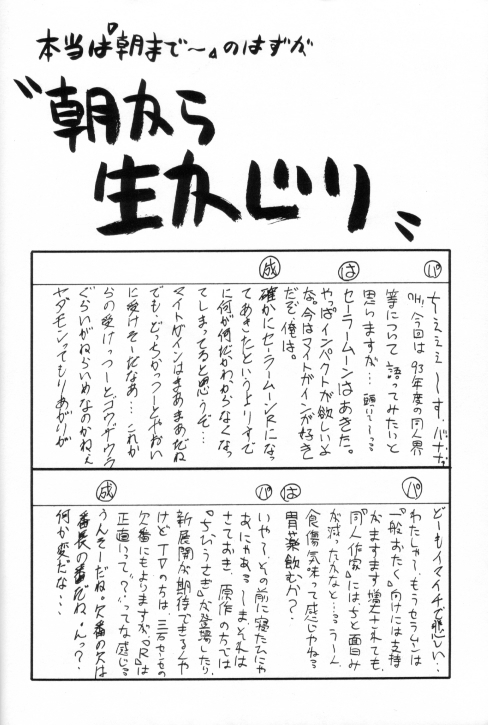 本当は『朝まで〜』のはずが
〝朝から
生かじり〟
パ
ちぇぇぇ〜す。バナナ
「H」今回は93年度の同人界
等について語ってみたいと
思いますが…
は
セーラームーンはあきた。
やっぱインパクトが欲しいよ
な。今はマイトガインが好き
だぞ俺は。
成
確かにセーラームーンRになっ
てあきたというよりすで
に何が何だかわからなくなっ
てしまってると思うぞ…
マイトガインはまあまあだね
でも、どっちかっつーとやおい
に受けそーだなあ…これか
らの受けっつーとゴウザウラ
ぐらいがねらいめなのかねぇ
ヤダモンってもりあがりが
パ
どーもイマイチで悲しい…
わたしゃ〜もうセラムンは
『一般おたく』向けには支持
がますます増大されても、
『同人作家』にはちと面白み
が減ったかなと…うーん
食傷気味って感じやねぇ
は
胃薬飲むか？
パ
いや〜、その前に寝たひにゃ
あ、にゃあ。ま、それは
さておき、原作の方では
『ちびうさぎ』が登場したり、
新展開が期待できるんや
けど、TVのちは、三石セーセの
欠番にもよりますが『R』は
正直いって"？"ってな感じる
成
うんそーだね。欠番の欠は
番長の番だね。んっ？
何か変だな…